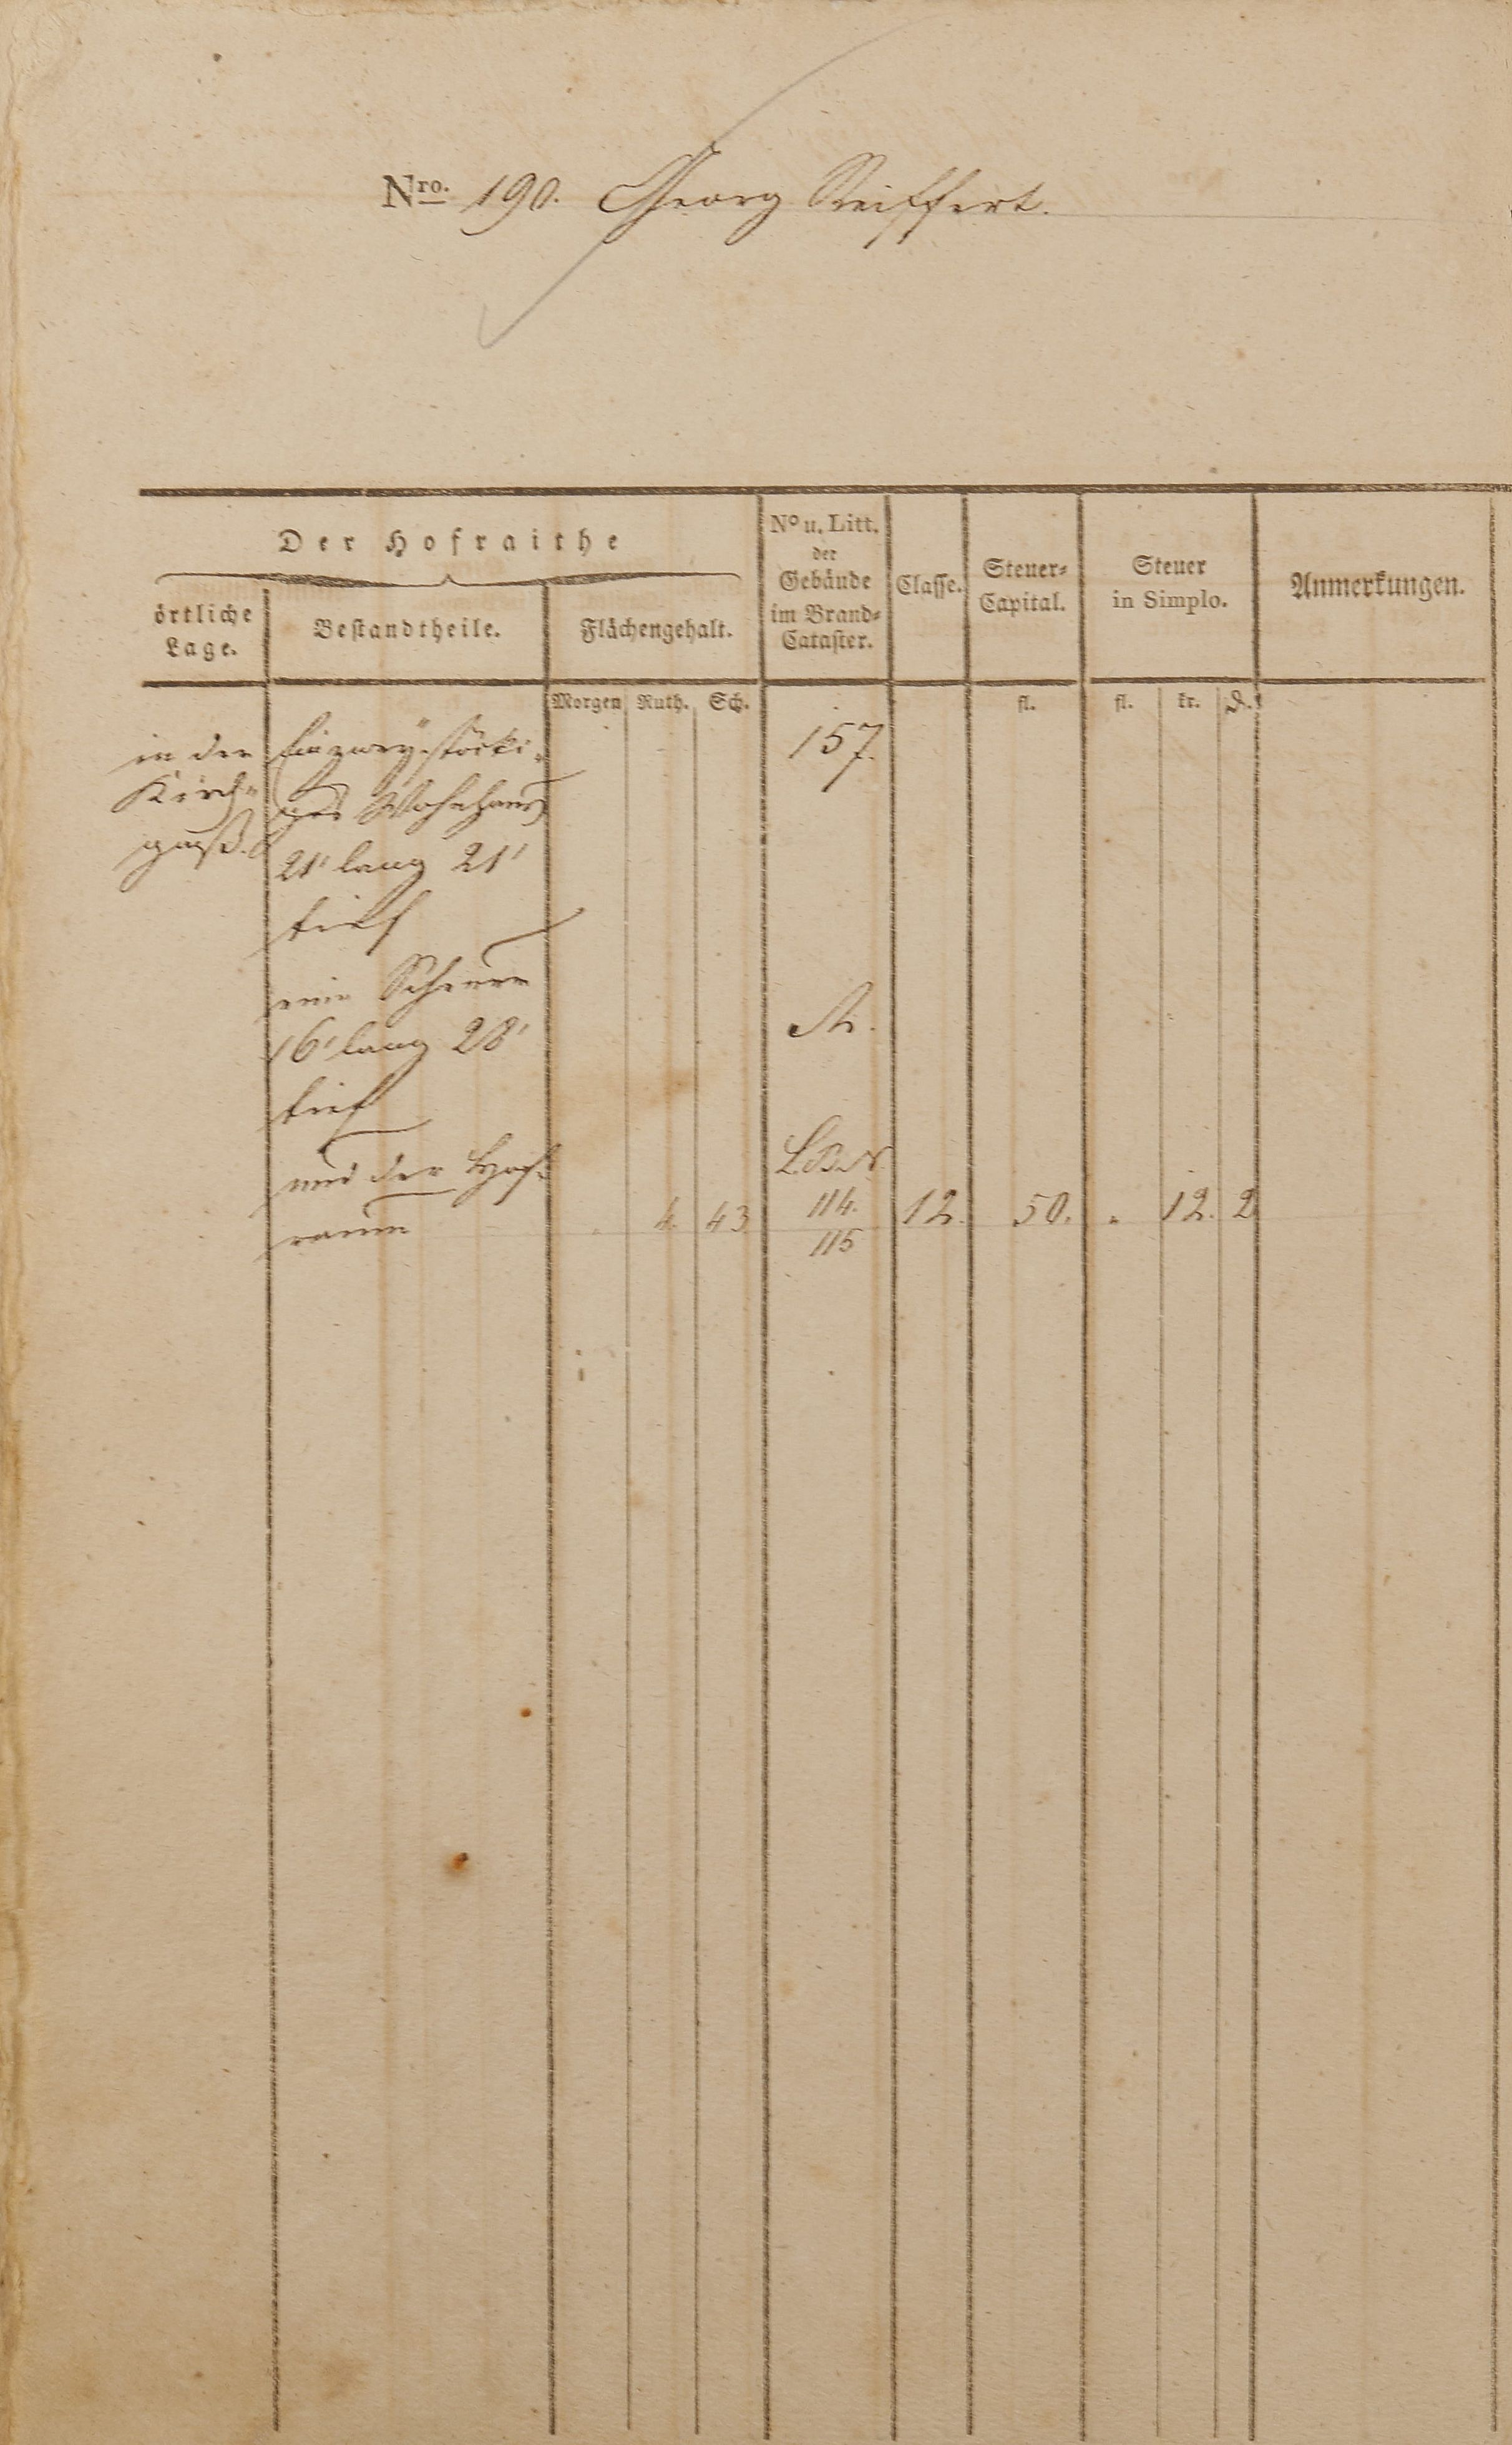 Nro. 190. Georg Reiffert.
Der Hofraithe
örtliche Lage.
Bestandtheile.
Flächengehalt.
No u. Litt. der Gebäude im Brand-Cataster.
Classe.
Steuer-Capital.
Steuer in Simplo.
Anmerkungen.
Morgen Ruth. Sch. fl. fl. kr. d.
in der Ein zwey-stöcki- 157.
Kirch- ges Wohnhaus
gaß.
21' lang 21'
tief
eine Scheuer
16' lang 28' A.
tief
und der Hof- L.B.N.
raum 4. 43 114. 12. 50. 12. 2
115